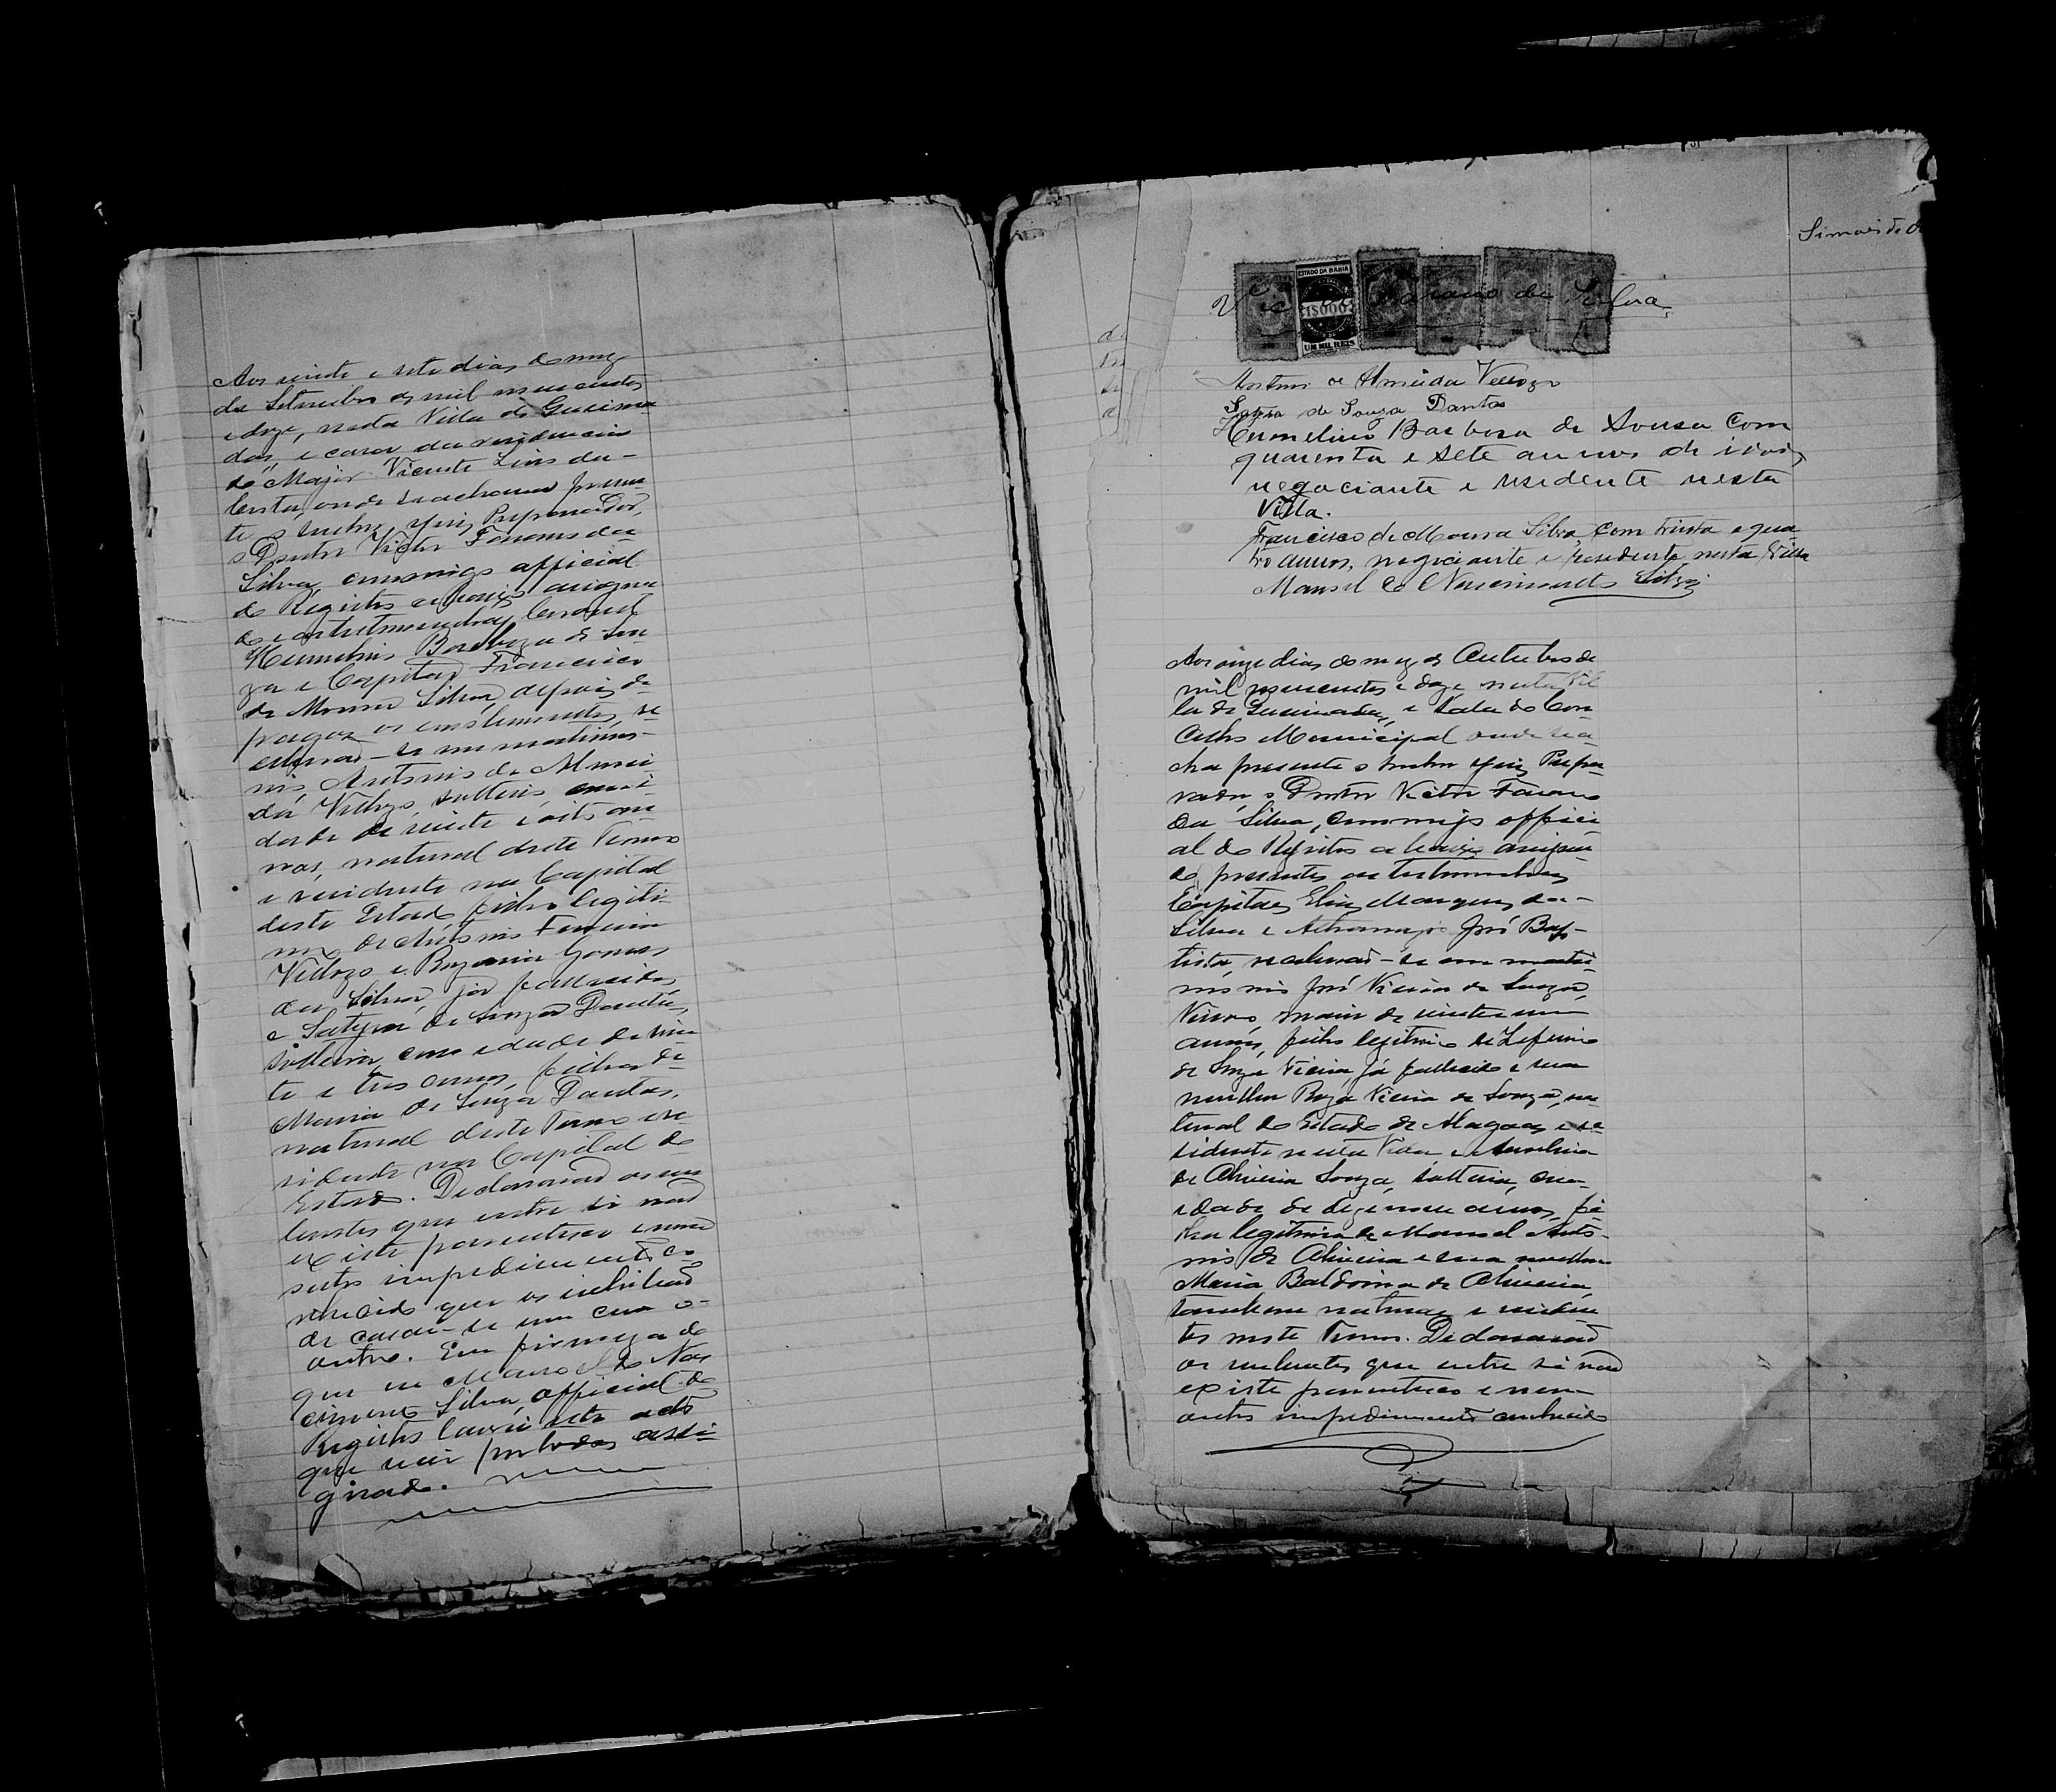 Aos vinte e sete dias do mez
de Setembro de mil novecentos
e doze, nesta Villa de Queima
das, e casa da residencia
do Major Vicente Lins da
Costa, onde se achava presen
te o senhor Juiz Preparador,
o Doutor Victor Faranno da
Silva, commigo official
do Registro abaixo assigna
do e as testemunhas, Coronel
Hermelino Barboza de Sou
za e Capitão Francisco
de Moura Silva, depois de
pagos os emolumentos, re
ceberaõ-se em matrimo-
nio, Antonio de Almei
da Vellozo, solteiro, com i-
dade de vinte e oito an
nos, natural deste Termo
e residente na Capital
deste Estado, filho legiti
mo de Antonio Ferreira
Vellozo e Gomes
da Silva, já fallecidos
e Satyra de Souza Dantas,
solteira, com edade de vin
te e tres annos, filha de
Maria de Souza Dantas,
natural deste Termo e re
sidente na Capital do
Estado. Declararaõ os nu
bentes que entre si naõ
existe parentesco e nem
outro impedimento co
nhecido que os inhibaõ
de casar-se um com o
outro. Em firmeza do
que eu Manoel do Nas
cimento Silva, official do
Registro lavrei este acto
que vai por todos assi
gnado.
Simões de
ESTADO DA BAHIA
1$000
UM MIL REIS
Victor Faranno da Silva
Antonio de Almeida Vellozo
Satyra de Souza Dantas
Hermelino Barbosa de Sousa com
quarenta e sete annos de idade,
negociante e residente nesta
Villa.
Francisco de Moura Silva, com trinta e qua
tro annos, negociante e residente nesta Villa
Manoel do Nascimento Silva
Aos onze dias do mez de Outubro de
mil novecentos e doze, nesta Vil
la de Queimadas, e Sala do Con
celho Municipal onde se a-
cha presente o senhor Juiz Prepa
rador, o Doutor Victor Faranno
da Silva, commigo offici
al do Registro abaixo assigna
do, presentes as testemunhas
Capitaes Elias Marques da
Silva e José Bap-
tista, receberaõ-se em matri
monio José Vieira de Souza,
Viuvo, maior de vinte e um
annos, filho legitimo de Zeferino
de Souza Vieira, já fallecido e sua
mulher Roza Vieira de Souza, na
tural do Estado de Alagoas e re
sidente nesta Villa e
de Oliveira Souza, solteira, com
idade de dezenove annos, fi
lha legitima de Manoel Anto-
nio de Oliveira e sua mulher
Maria Baldoina de Oliveira,
tambem naturaes e residen
tes neste Termo. Declararaõ
os nubentes que entre si naõ
existe parentesco e nem
outro impedimento conhecido